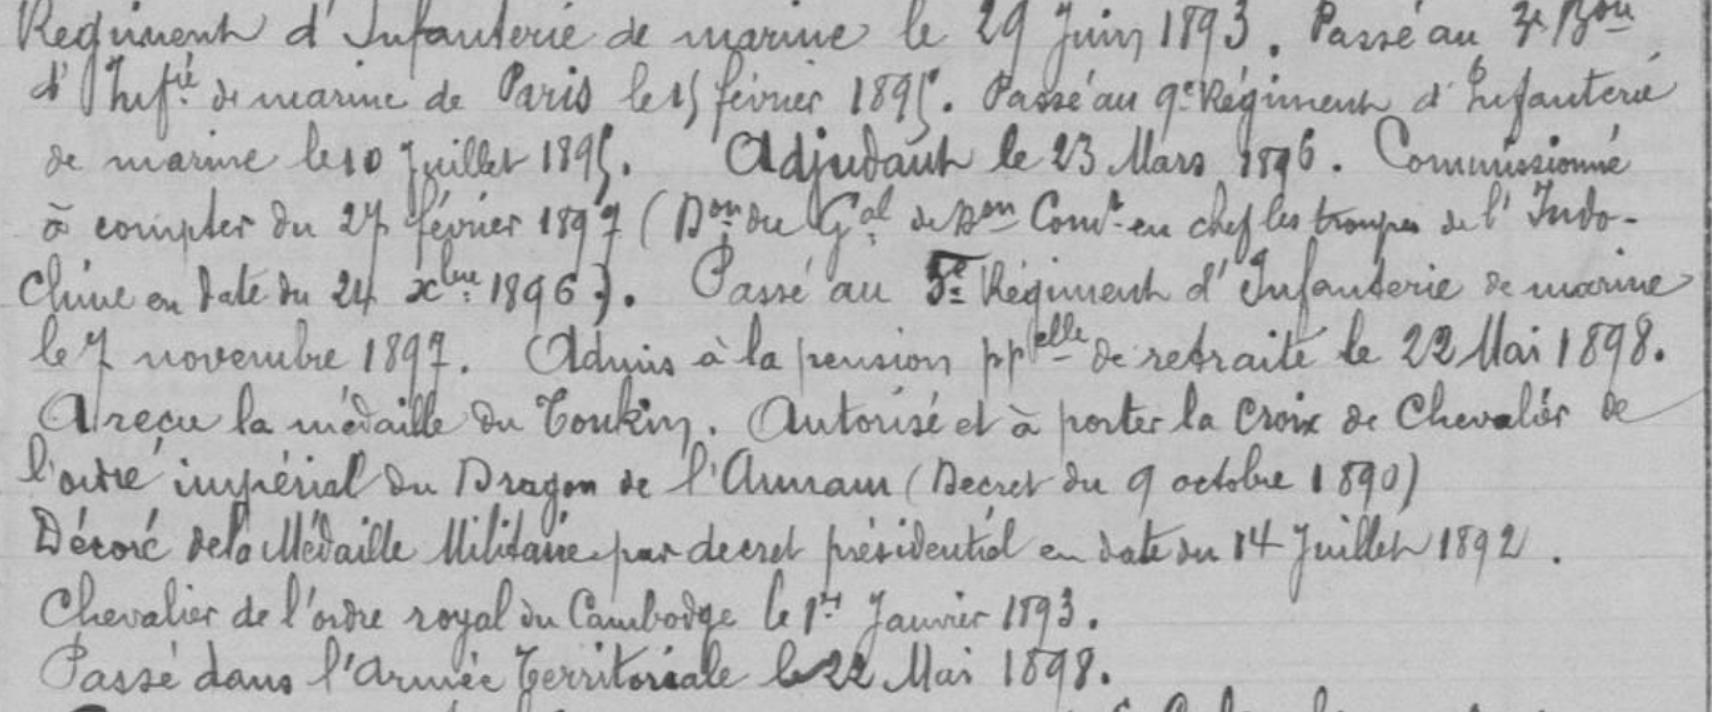 Régiment d'Infanterie de marine le 29 Juin 1893. Passé au Bon
d'Infie de marine de Paris le 15 février 1895. Passé au 9e Régiment d'Infanterie
de marine le 10 Juillet 1895. Adjudant le 23 Mars 1896. Commissionné
à compter du 27 février 1897 (Don du Gal de Don Comt en chef les troupes de l'Indo-
Chine en date du 24 xbre 1896). Passé au 5e Régiment d'Infanterie de marine
le 7 novembre 1897. Admis à la pension ppelle de retraite le 22 Mai 1898.
A reçu la médaille du Tonkin. Autorisé et à porter la Croix de Chevalier de
l'ordre impérial du Dragon de l'Annam (Décret du 9 octobre 1890)
Décoré de la Médaille Militaire par decret présidentiel en date du 14 Juillet 1892.
Chevalier de l'ordre royal du Cambodge le 1er Janvier 1893.
Passé dans l'Armée Territoriale le 22 Mai 1898.